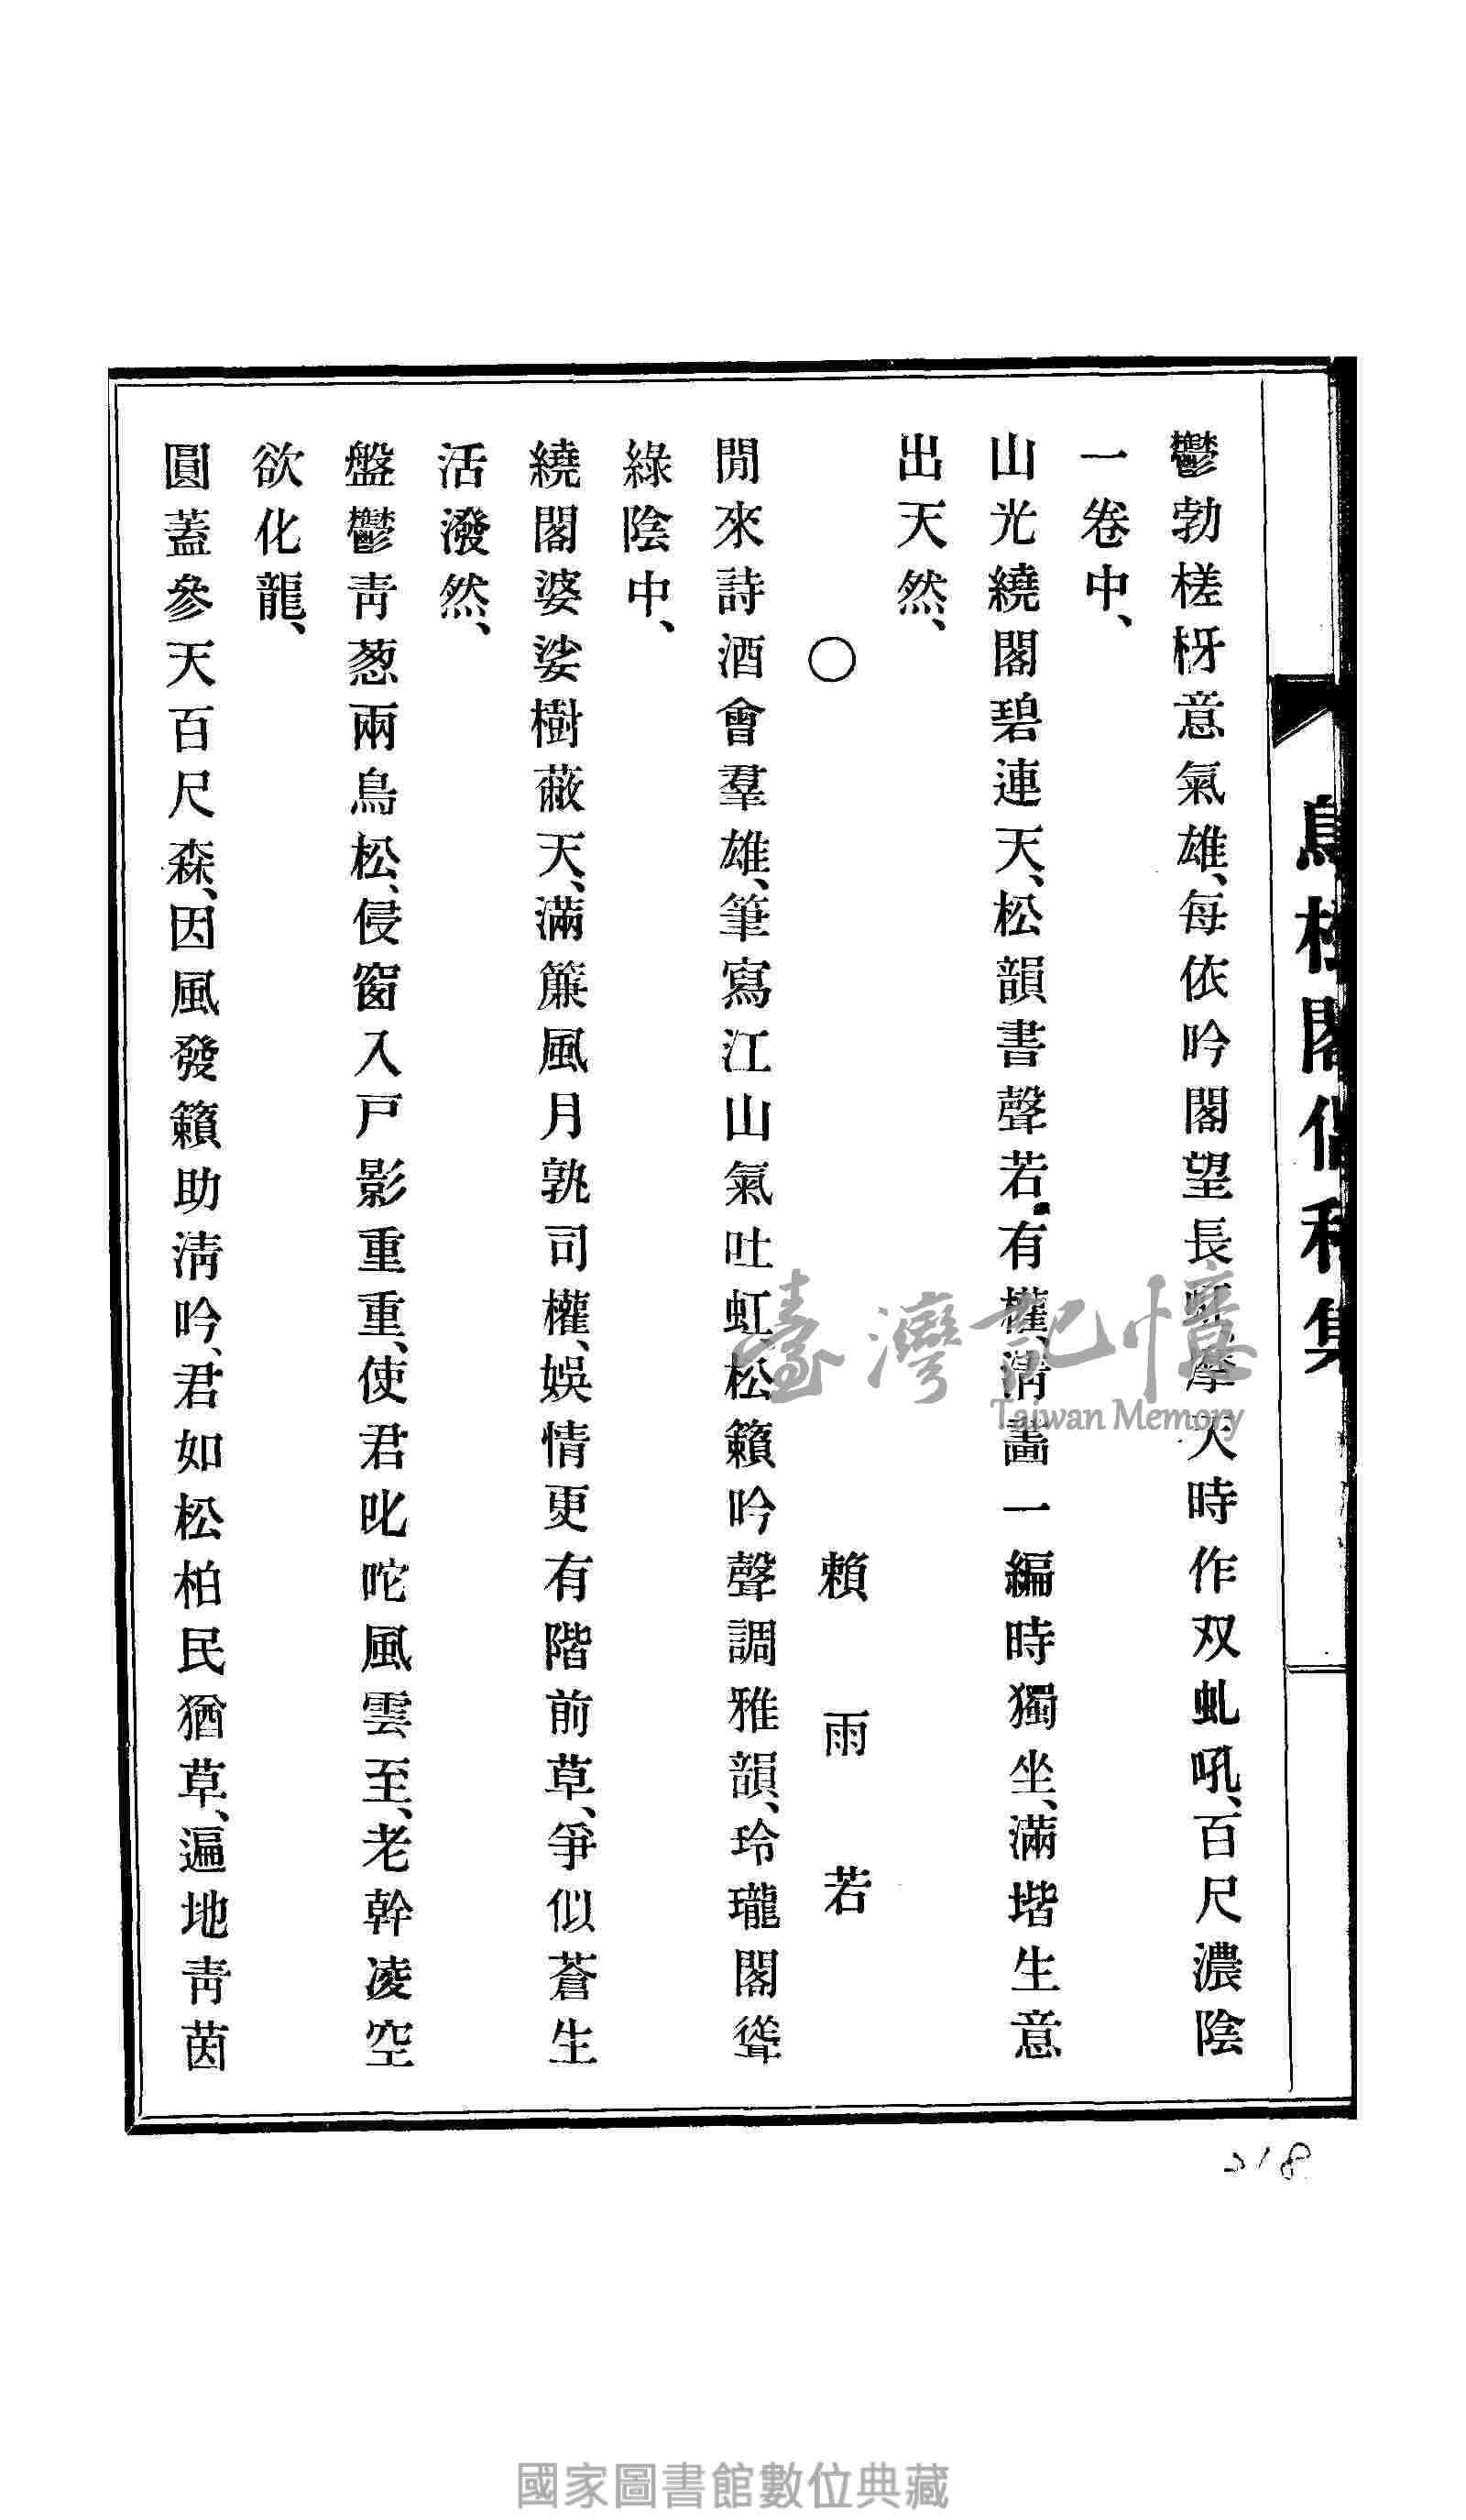 鬱勃槎枒意氣雄、每依吟閣望長虹、摩天時作双虬吼、百尺濃陰
一卷中、
山光繞閣碧連天、松韻書聲若有權、淸晝一編時獨坐、滿堦生意
出天然、
○ 賴雨若
閒來詩酒會羣雄、筆寫江山氣吐虹、松籟吟聲調雅韻、玲瓏閣聳
綠陰中、
繞閣婆娑樹蔽天、滿簾風月孰司權、娛情更有階前草、爭似蒼生
活潑然、
盤鬱靑葱兩鳥松、侵窗入戸影重重、使君叱咜風雲至、老幹凌空
欲化龍、
圓蓋參天百尺森、因風發籟助淸吟、君如松柏民猶草、遍地靑茵
臺灣記憶
Taiwan Memory
318
國家圖書館數位典藏